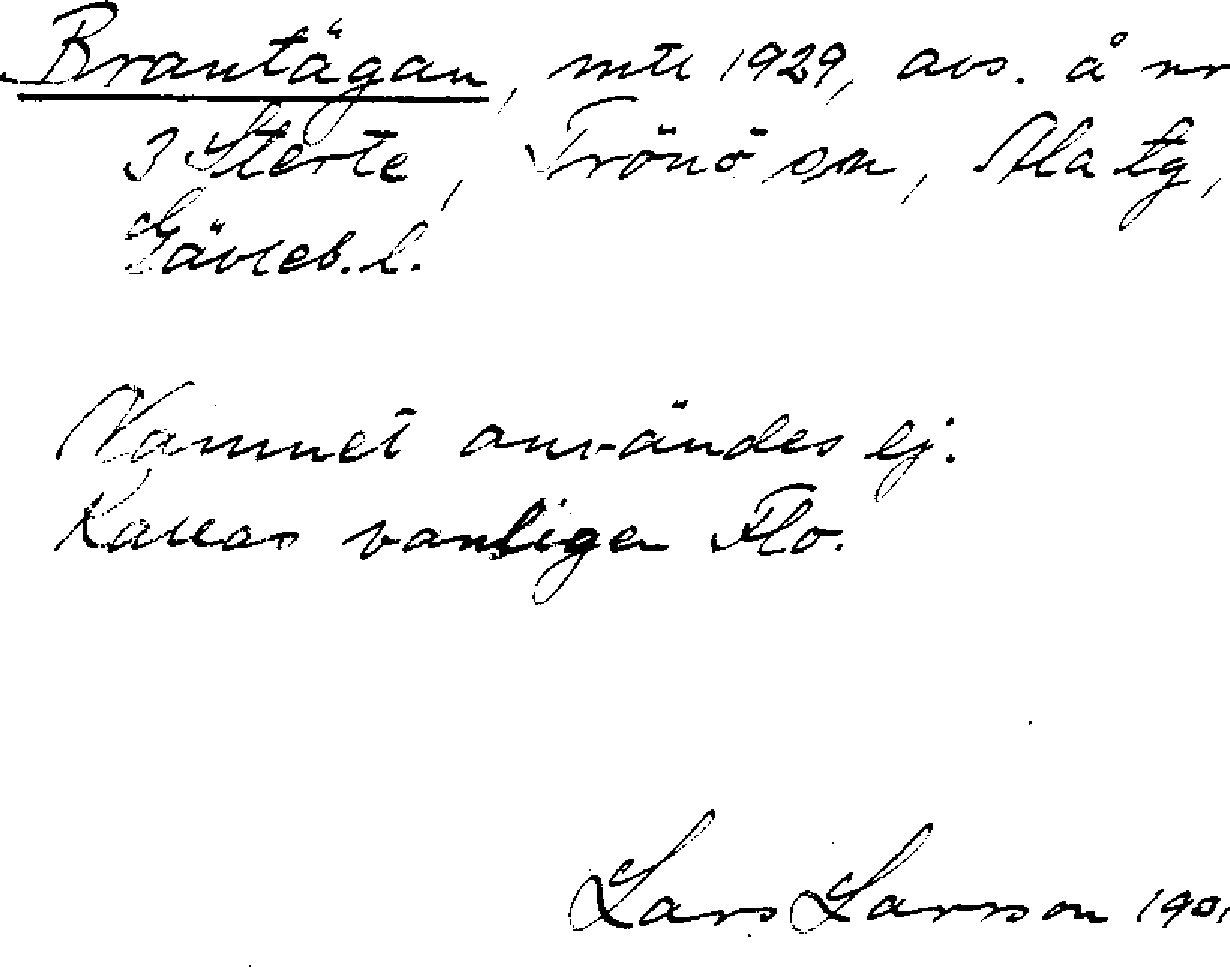 Brantägan, mtl 1929, avs. å nr
3 Sterte, Trönö sn, Ala tg,
Gävleb. l.
Namnet användes ej.
Kallas vanligen Flo.
Lars Larsson 190